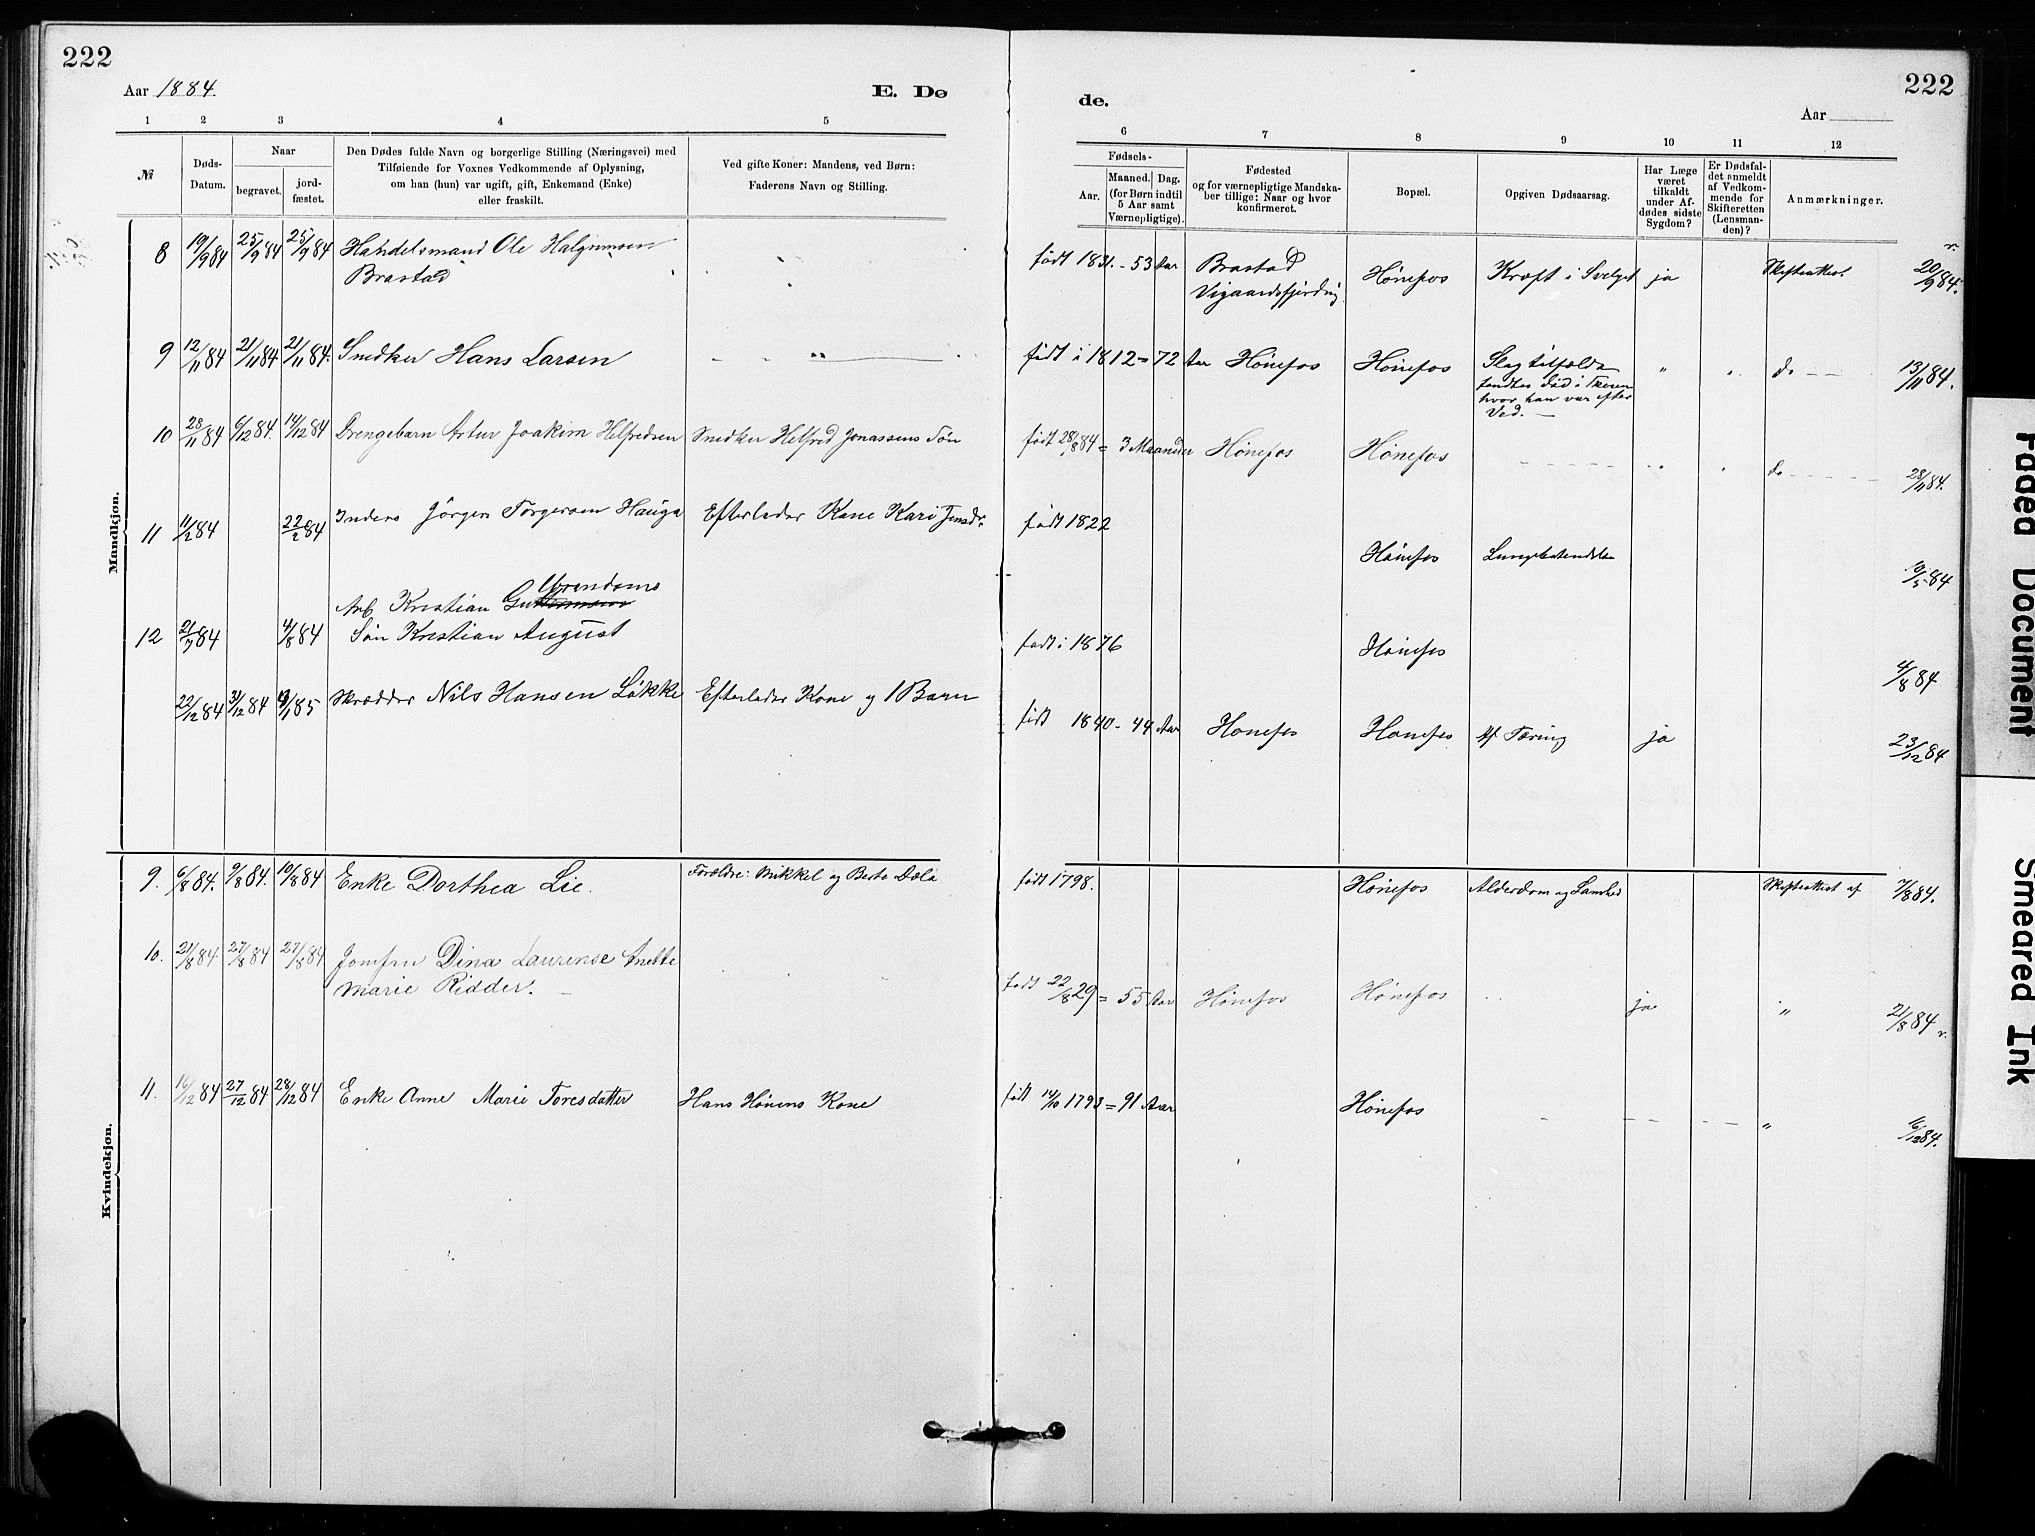 222
222
Aar 1884.
E. Dø
de.
Aar
1 2 3 4 5 6 7 8 9 10 11 12
№
Døds-
Datum.
Naar
begravet.
jord-
fæstet.
Den Dødes fulde Navn og borgerlige Stilling (Næringsvei) med
Tilføiende for Voxnes Vedkommende af Oplysning,
om han (hun) var ugift, gift, Enkemand (Enke)
eller fraskilt.
Ved gifte Koner: Mandens, ved Børn:
Faderens Navn og Stilling.
Fødsels-
Aar.
Maaned. Dag.
(for Børn indtil
5 Aar samt
Værnepligtige).
Fødested
og for værnepligtige Mandska-
ber tillige: Naar og hvor
konfirmeret.
Bopæl.
Opgiven Dødsaarsag.
Har Læge
været
tilkaldt
under Af-
dødes sidste
Sygdom?
Er Dødsfal-
det anmeldt
af Vedkom-
mende for
Skifteretten
(Lensman-
den)?
Anmærkninger.
Mandkjøn.
8 19/9 84 25/9 84 25/9 84 Handelsmand Ole Halgrimsen født 1831. - 53 Aar Brastad Hønefos Kræft i Svelget ja Skifteattest 20/9 84.
Brastad
9 12/11 84 21/11 84 21/11 84. Snedker Hans Larsen „ født i 1812 = 72 Aar Hønefos Hønefos Slagtilfælde „ „ do 13/11 84.
fandtes død i
hvor han var efter
Ved.
10 28/11 84 6/12 84. 14/12 84 Drengebarn Artur Joakim Helfredsen Snedker Helfred Jonassens Søn født 28/8 84 = 3 Maaneder Hønefos Hønefos do 28/11 84.
11 11/2 84 22/2 84 Inderst Jörgen Torgersen Hauga Efterlader Kone Kari Jensdr. født 1822
Hønefos Lungebetændelse 84
Arb Kristian
12 21/7 84 4/8 84 Søn Kristian August født i 1876 Hønefos 4/8 84
22/12 84 31/12 84 85 Skrædder Nils Hansen Løkke Efterlader Kone og 1 Barn født 1840 - 44 Aar Hønefos Hønefos Af Tæring ja 23/12 84
Kvindekjøn.
9. 6/8 84. 9/8 84. 19/8 84 Enke Dorthea Lie. Forældre: Mikkel og Berte Dæla født 1798. Hønefos Alderdom og Lamhed Skifteattest af 7/8 84.
10. 21/8 84. 27/8 84 27/8 84 Jomfru Dina Laurense Anette født 22/8 29 = 55 Aar Hønefos Hønefos ja „ 21/8 84
Marie Ridder.
11. 16/12 84 27/12 84 28/12 84 Enke Anne Marie Toresdatter Hans Hønens Kone født 14/10 1793 = 91 Aar Hønefos „ 16/12 84.
Faded Document
Smeared Ink